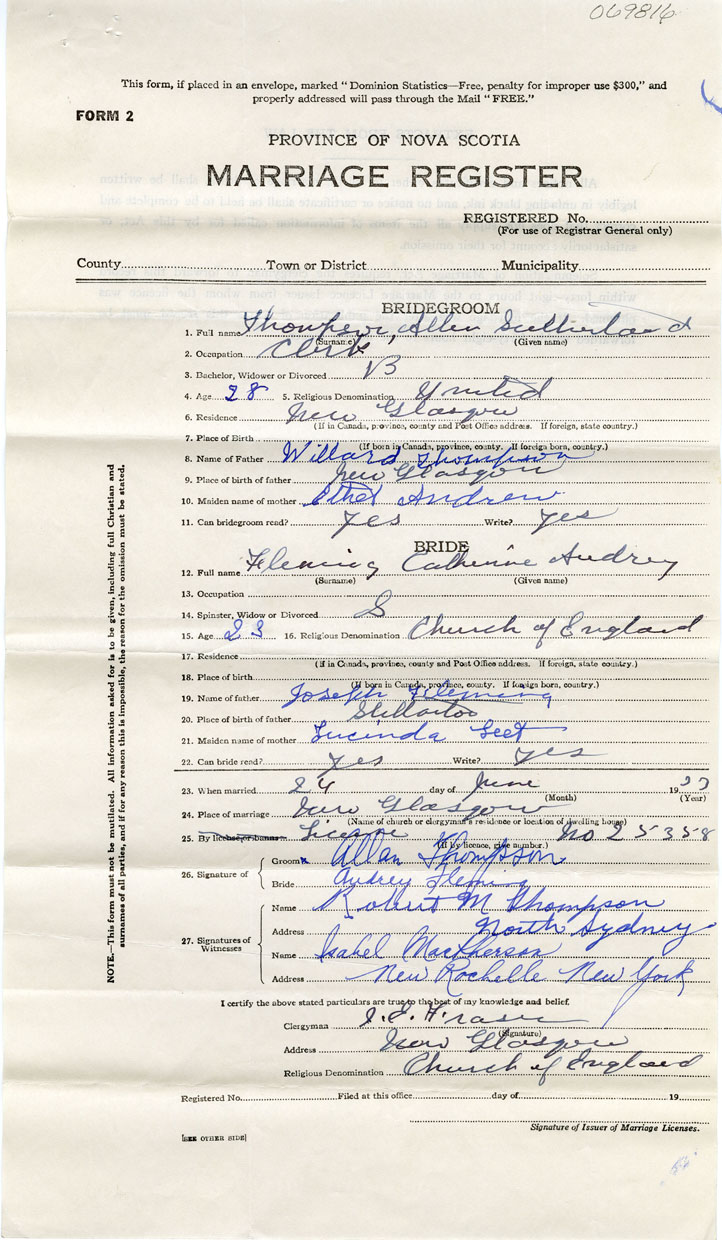 069816
This form, if placed in an envelope, marked "Dominion Statistics—Free, penalty for improper use $300," and
properly addressed will pass through the Mail "FREE."
FORM 2
PROVINCE OF NOVA SCOTIA
MARRIAGE REGISTER
REGISTERED No.
(For use of Registrar General only)
County Town or District Municipality
BRIDEGROOM
1. Full name Thompson, Allen Sutherland
(Surname) (Given name)
2. Occupation Clerk
3. Bachelor, Widower or Divorced B
4. Age 28 5. Religious Denomination United
6. Residence New Glasgow
(If in Canada, province, county and Post Office address. If foreign, state country.)
7. Place of Birth
(If born in Canada, province, county. If foreign born, country.)
8. Name of Father Willard Thompson
9. Place of birth of father New Glasgow
10. Maiden name of mother Ethel Andrew
11. Can bridegroom read? yes Write? yes
BRIDE
12. Full name Fleming Catherine Audrey
(Surname) (Given name)
13. Occupation
14. Spinster, Widow or Divorced S
15. Age 23 16. Religious Denomination Church of England
17. Residence
(If in Canada, province, county and Post Office address. If foreign, state country.)
18. Place of birth
(If born in Canada, province, county. If foreign born, country.)
19. Name of father Joseph Fleming
20. Place of birth of father Stellarton
21. Maiden name of mother Lucinda
22. Can bride read? yes Write? yes
23. When married 24 day of June 1937
(Month) (Year)
24. Place of marriage New Glasgow
(Name of church or clergyman's residence or location of dwelling house)
25. By license or banns License No 25358
(If by licence, give number.)
26. Signature of
Groom Allan Thompson
Bride Audrey Fleming
27. Signatures of Witnesses
Name Robert M Thompson
Address North Sydney
Name Isabel MacPherson
Address New Rochelle New York
I certify the above stated particulars are true to the best of my knowledge and belief.
Clergyman Fraser
(Signature)
Address New Glasgow
Religious Denomination Church of England
Registered No. Filed at this office day of 19
Signature of Issuer of Marriage Licenses.
[SEE OTHER SIDE]
NOTE.—This form must not be mutilated. All information asked for is to be given, including full Christian and
surnames of all parties, and if for any reason this is impossible, the reason for the omission must be stated.